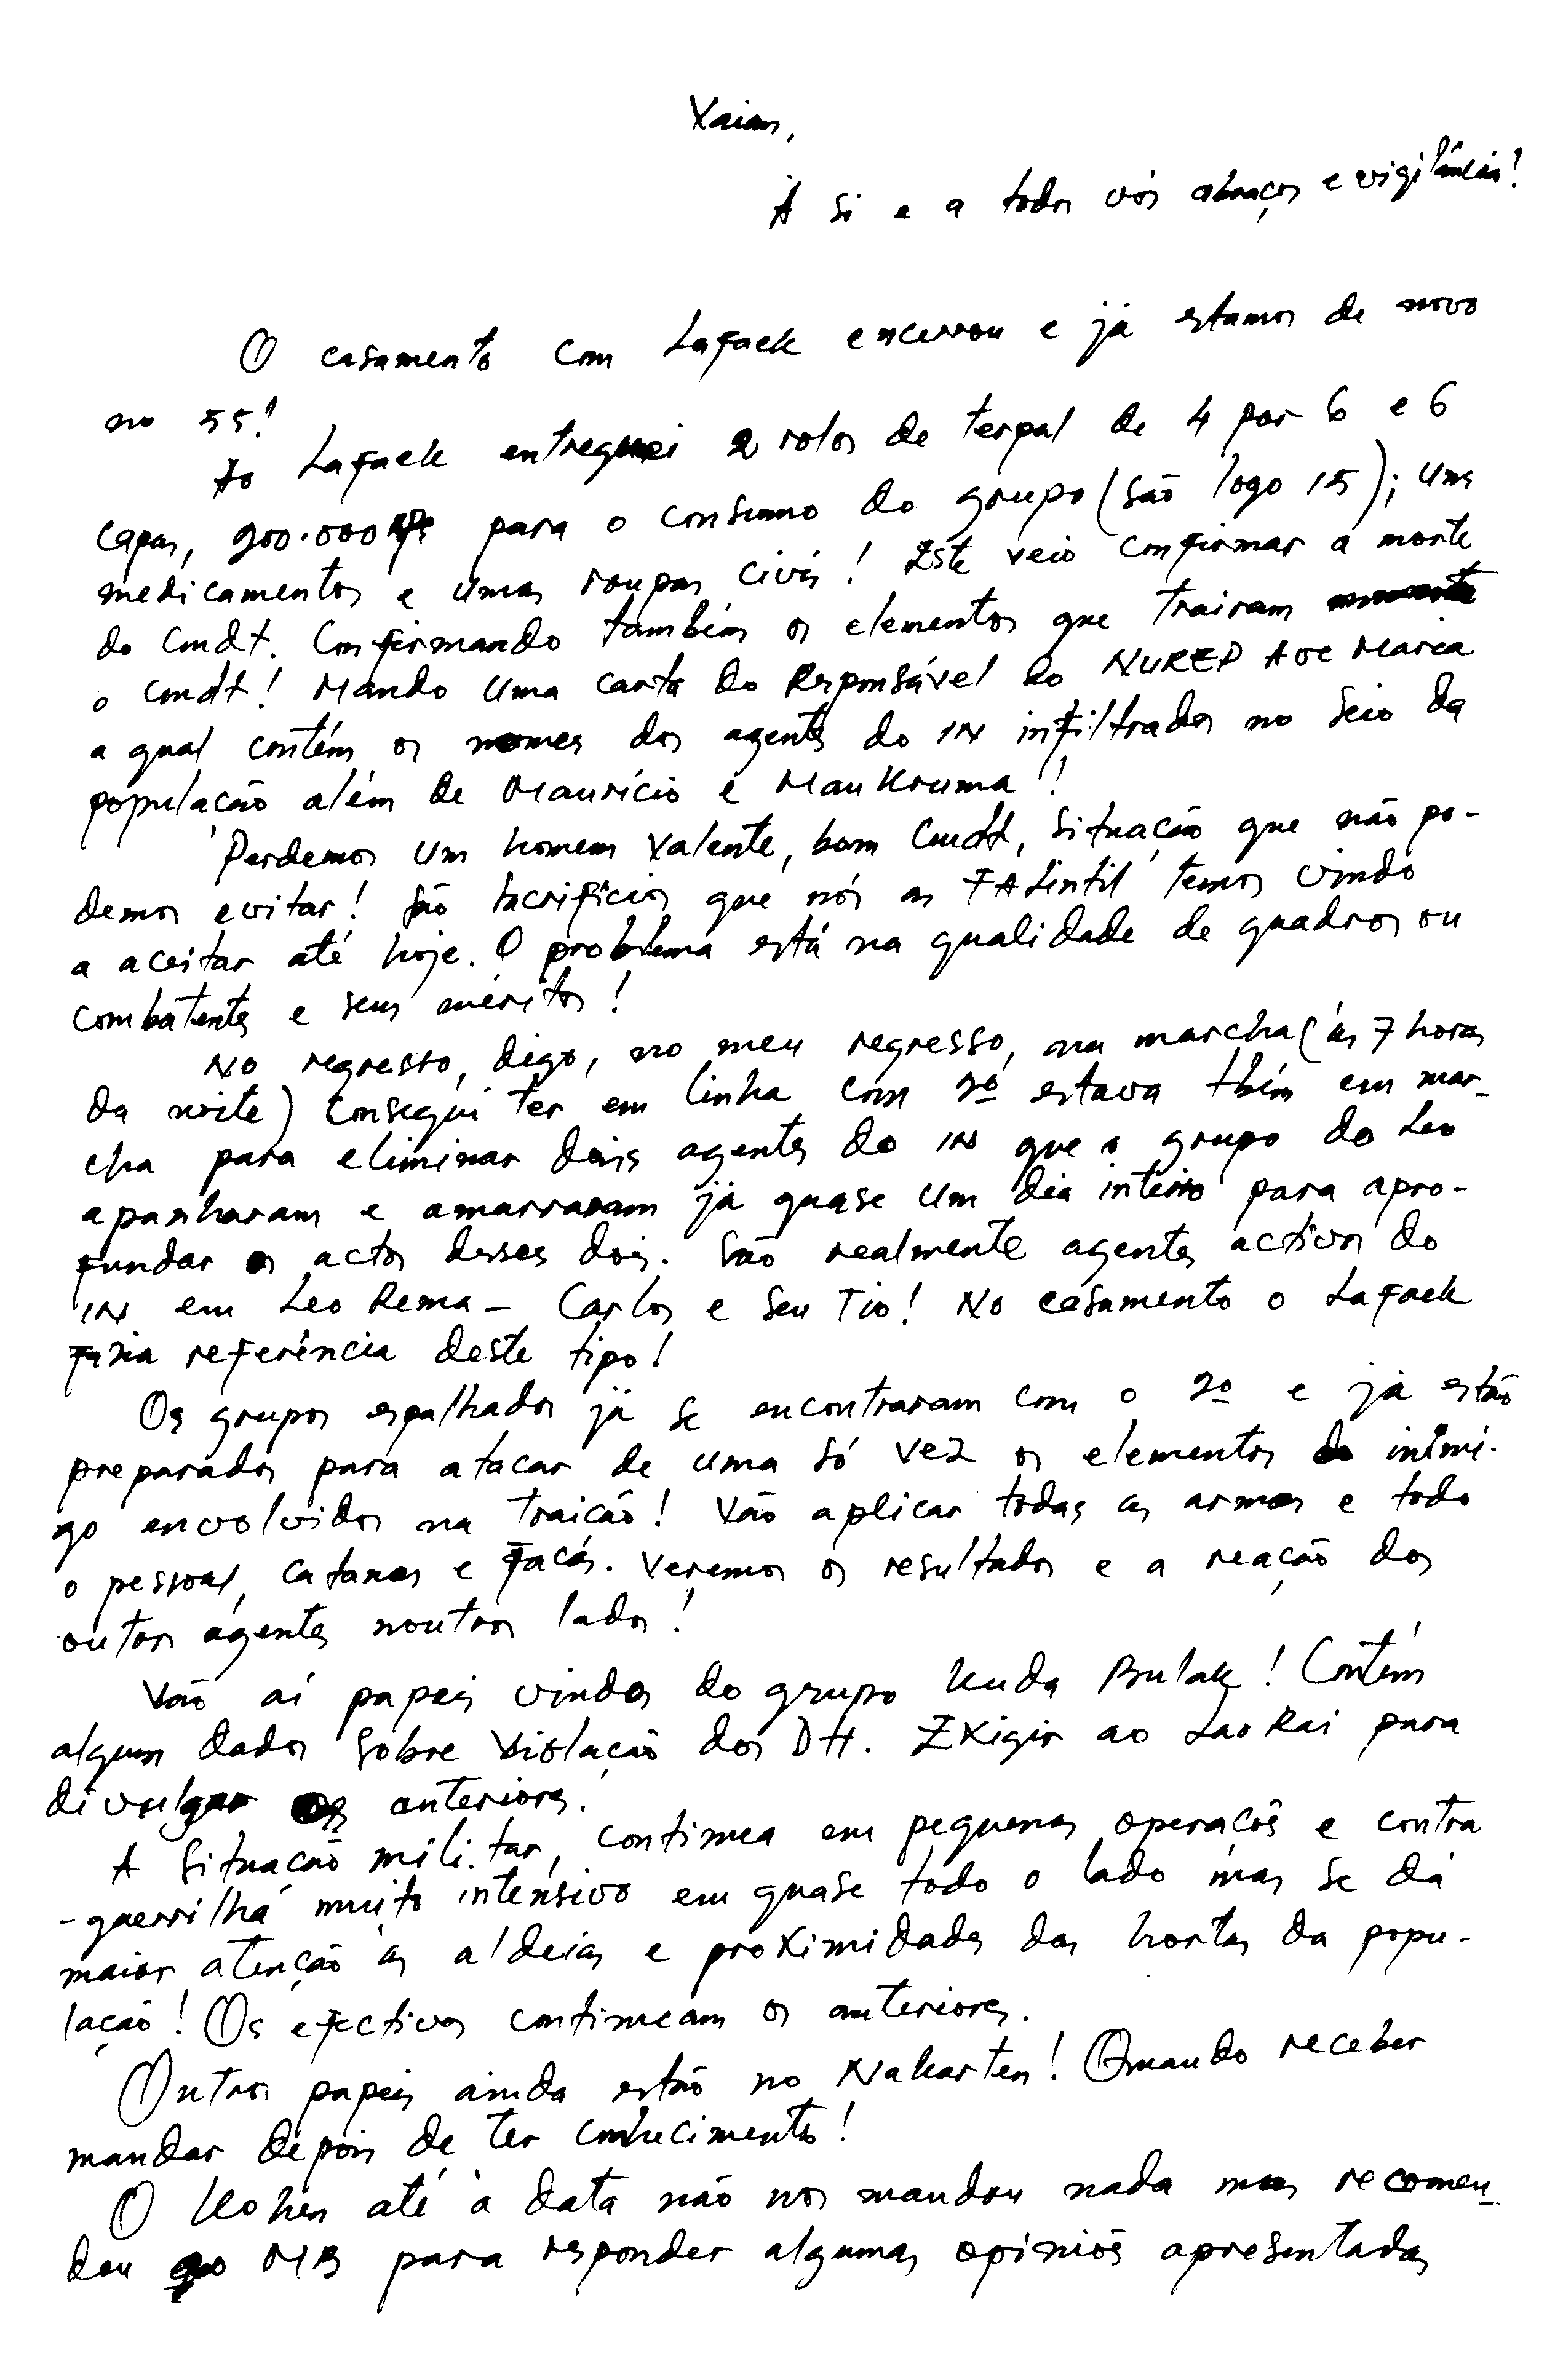 Xaian,
À si e a todos vós abraços e vigilância!
O casamento com Lafaek encerrou e já estamos de novo
no 55!
Ao Lafaek entreguei 2 rolos de terpal de 4 por 6 e 6
capas, 200.000 Rps para o consumo do grupo (são logo 15); uns
medicamentos e umas roupas civis! Este veio confirmar a morte
do Cmdt. Confirmando também os elementos que trairam
o Cmdt! Mando uma carta do Responsável do NUREP Aoe Maria
a qual contém os nomes dos agentes do IN infiltrados no seio da
população além de Maurício e Mau Kruma!
Perdemos um homem valente, bom Cmdt, situação que não po-
demos evitar! São sacrifícios que nós as FALintil temos vindo
a aceitar até hoje. O problema está na qualidade de quadros ou
combatentes e seus méritos!
No regresso, digo, no meu regresso, na marcha (às 7 horas
da noite) consegui ter em linha com 2º estava tbém em mar-
cha para eliminar dois agentes do IN que o grupo do Leo
apanharam e amarraram já quase um dia inteiro para apro-
fundar os actos desses dois. São realmente agentes activos do
IN em Leo Rema - Carlos e seu Tio! No casamento o Lafaek
fazia referência deste tipo!
Os grupos espalhados já se encontraram com o 2º e já estão
preparados para atacar de uma só vez os elementos do inimi-
go envolvidos na traição! Vão aplicar todas as armas e todo
o pessoal, catanas e facás. Veremos os resultados e a reação dos
outros agentes noutros lados!
Vão aí papeis vindos do grupo Kuda Bulak! Contém
alguns dados sobre violação dos DH. Exigir ao Lao Rai para
divulgar os anteriores.
A situação militar, continua em pequenas operacõs e contra
-guerrilhá muito intensivo em quase todo o lado mas se dá
maior atenção às aldeias e proximidades das hortas da popu-
lação! Os efectivos continuam os anteriores.
Outros papeis ainda estão no Nakarten! Quando receber
mandar depois de ter conhecimento!
O Kohen até à data não nos mandou nada mas recomen-
dou ao MB para responder algumas opiniõs apresentadas